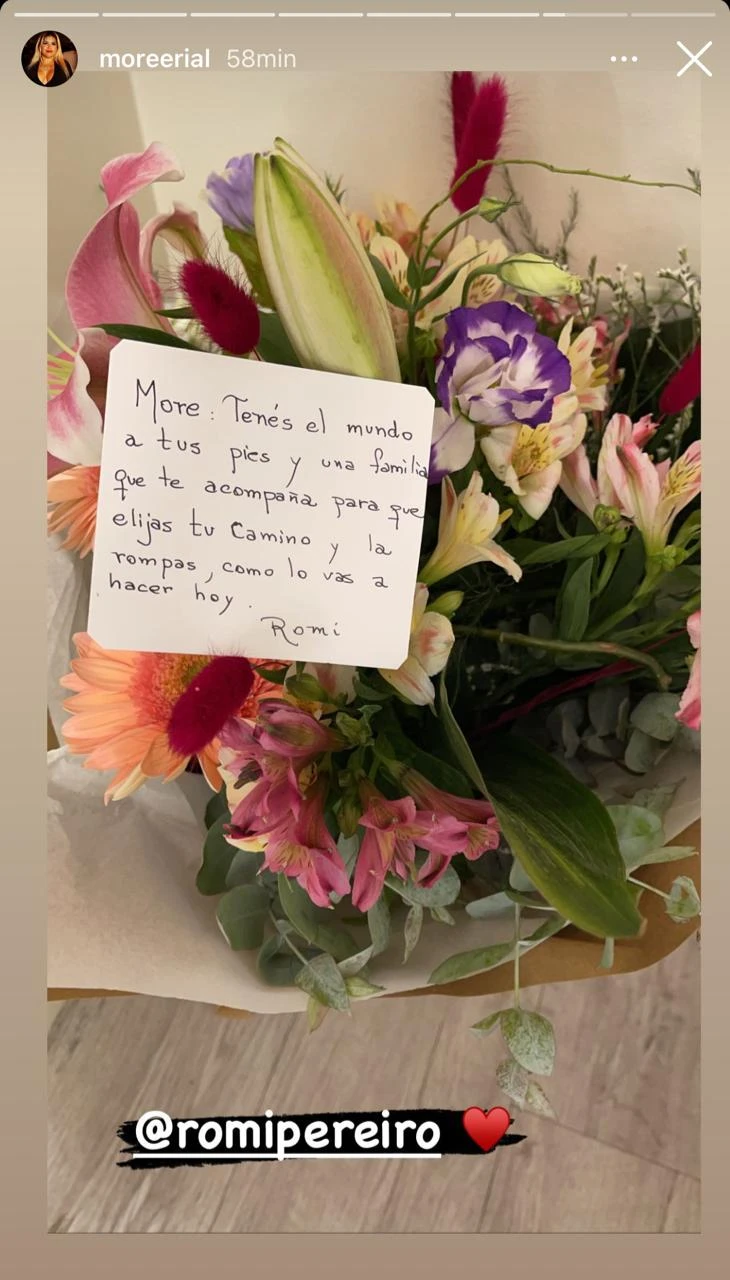 moreerial 58min
More: Tenés el mundo
a tus pies y una familia
que te acompaña para que
elijas tu Camino y la
rompas, como lo vas a
hacer hoy.
Romi
@romipereiro ❤️